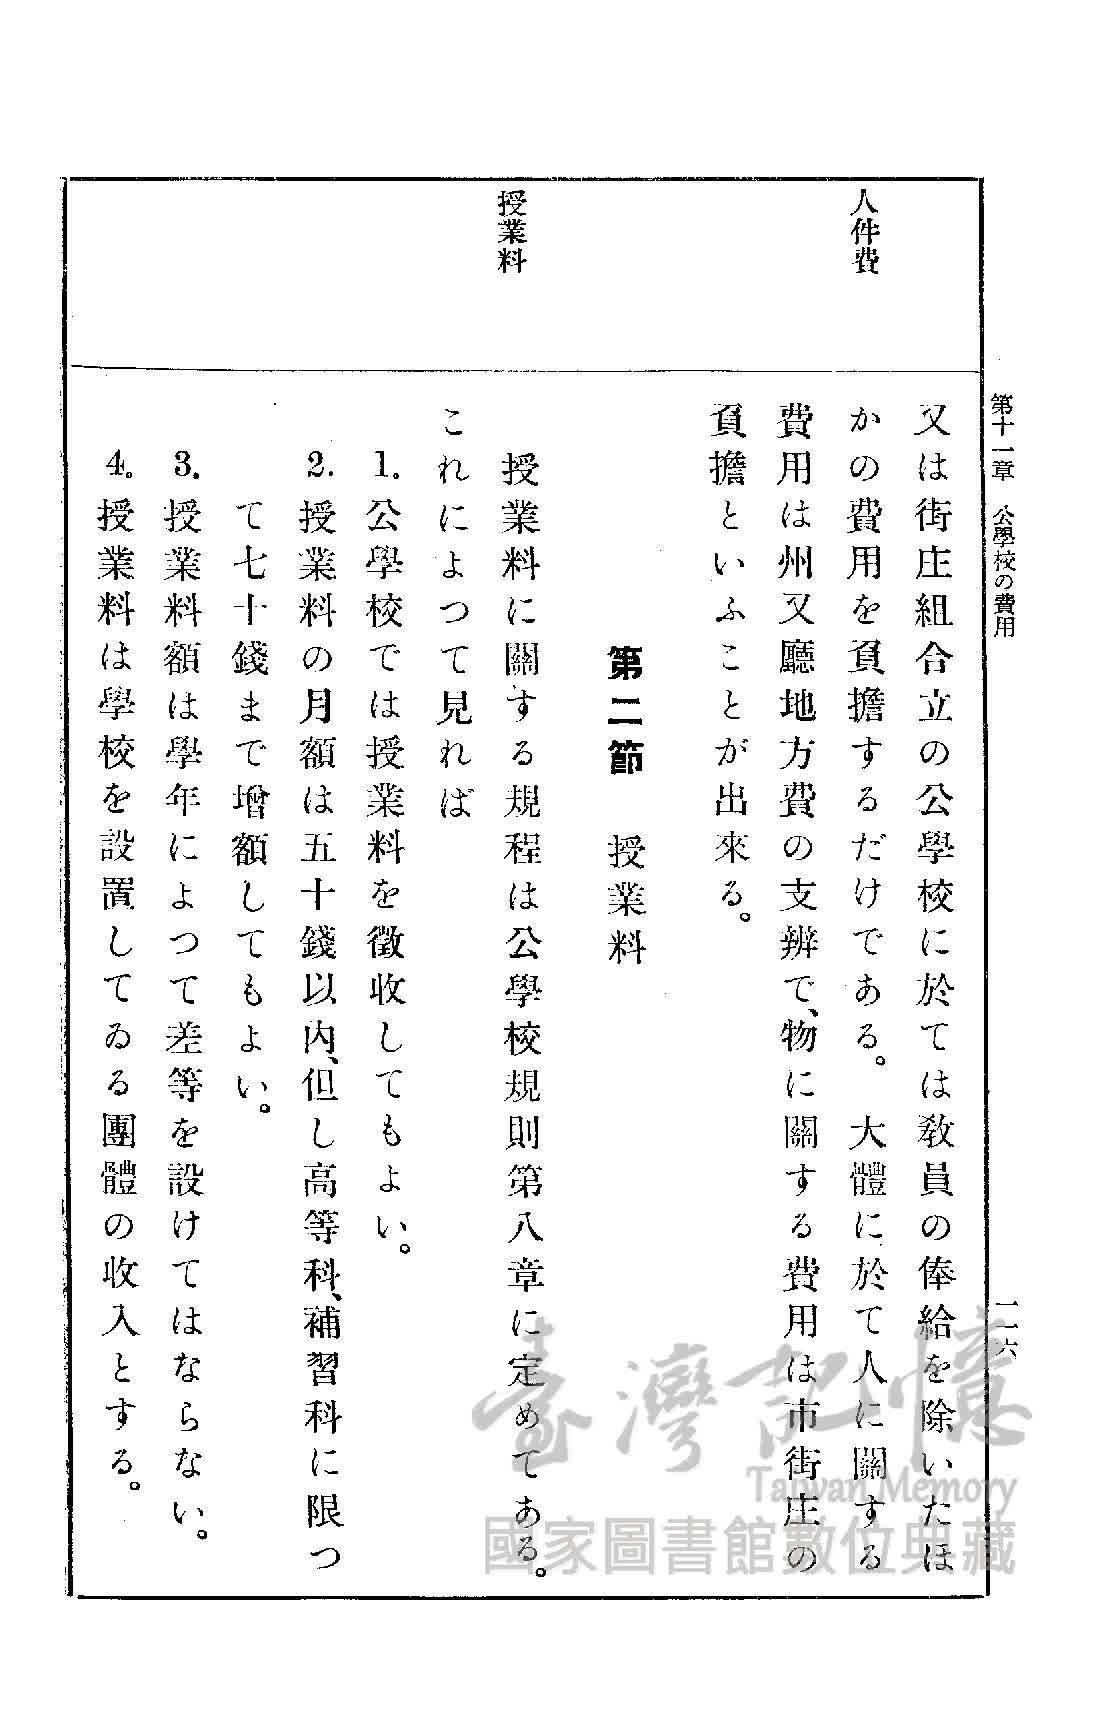 第十一章　公學校の費用
一一六
人件費
又は街庄組合立の公學校に於ては敎員の俸給を除いたほ
かの費用を負擔するだけである。　大體に於て人に關する
費用は州又廳地方費の支辨で、物に關する費用は市街庄の
負擔といふことが出來る。
第二節　授業料
授業料
授業料に關する規程は公學校規則第八章に定めてある。
これによつて見れば
1. 公學校では授業料を徵收してもよい。
2. 授業料の月額は五十錢以內、但し高等科、補習科に限つ
て七十錢まで增額してもよい。
3. 授業料額は學年によつて差等を設けてはならない。
4. 授業料は學校を設置してゐる團體の收入とする。
臺灣記憶
Taiwan Memory
國家圖書館數位典藏